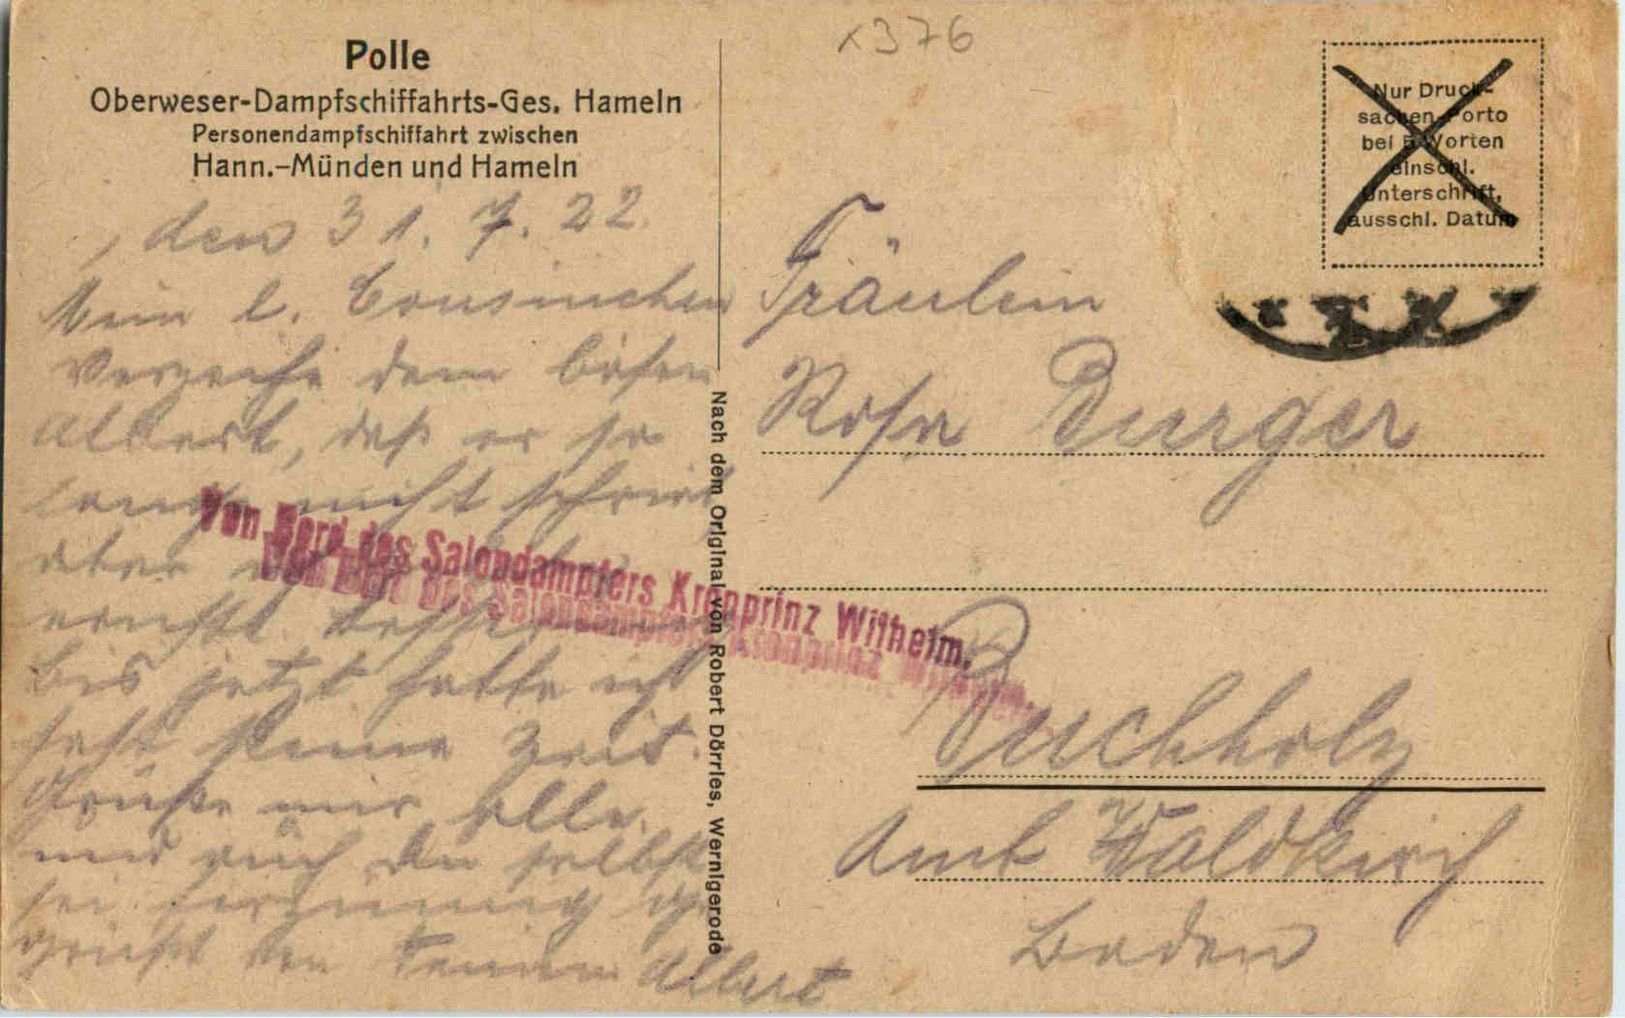 Polle
Oberweser-Dampfschiffahrts-Ges. Hameln
Personendampfschiffahrt zwischen
Hann.-Münden und Hameln
x376
Nur Druck-
sachen-Porto
bei 5 Worten
einschl.
Unterschrift,
ausschl. Datum
den 31. 7. 22.
Mein l. Cousinchen
Verzeihe dem bösen
Albert, daß er so
lange nicht schrieb,
aber
bis jetzt hatte ich
fast keine Zeit.
Grüße mir alle.
und auch Du selbst
sei
gegrüßt von Deinem Albert
Von Bord des Salondampfers Kronprinz Wilhelm.
Von Bord des Salondampfers Kronprinz Wilhelm.
Nach dem Original von Robert Dörries, Wernigerode
Fräulein
Rosa Burger
Buchholz
Amt Waldkirch
Baden